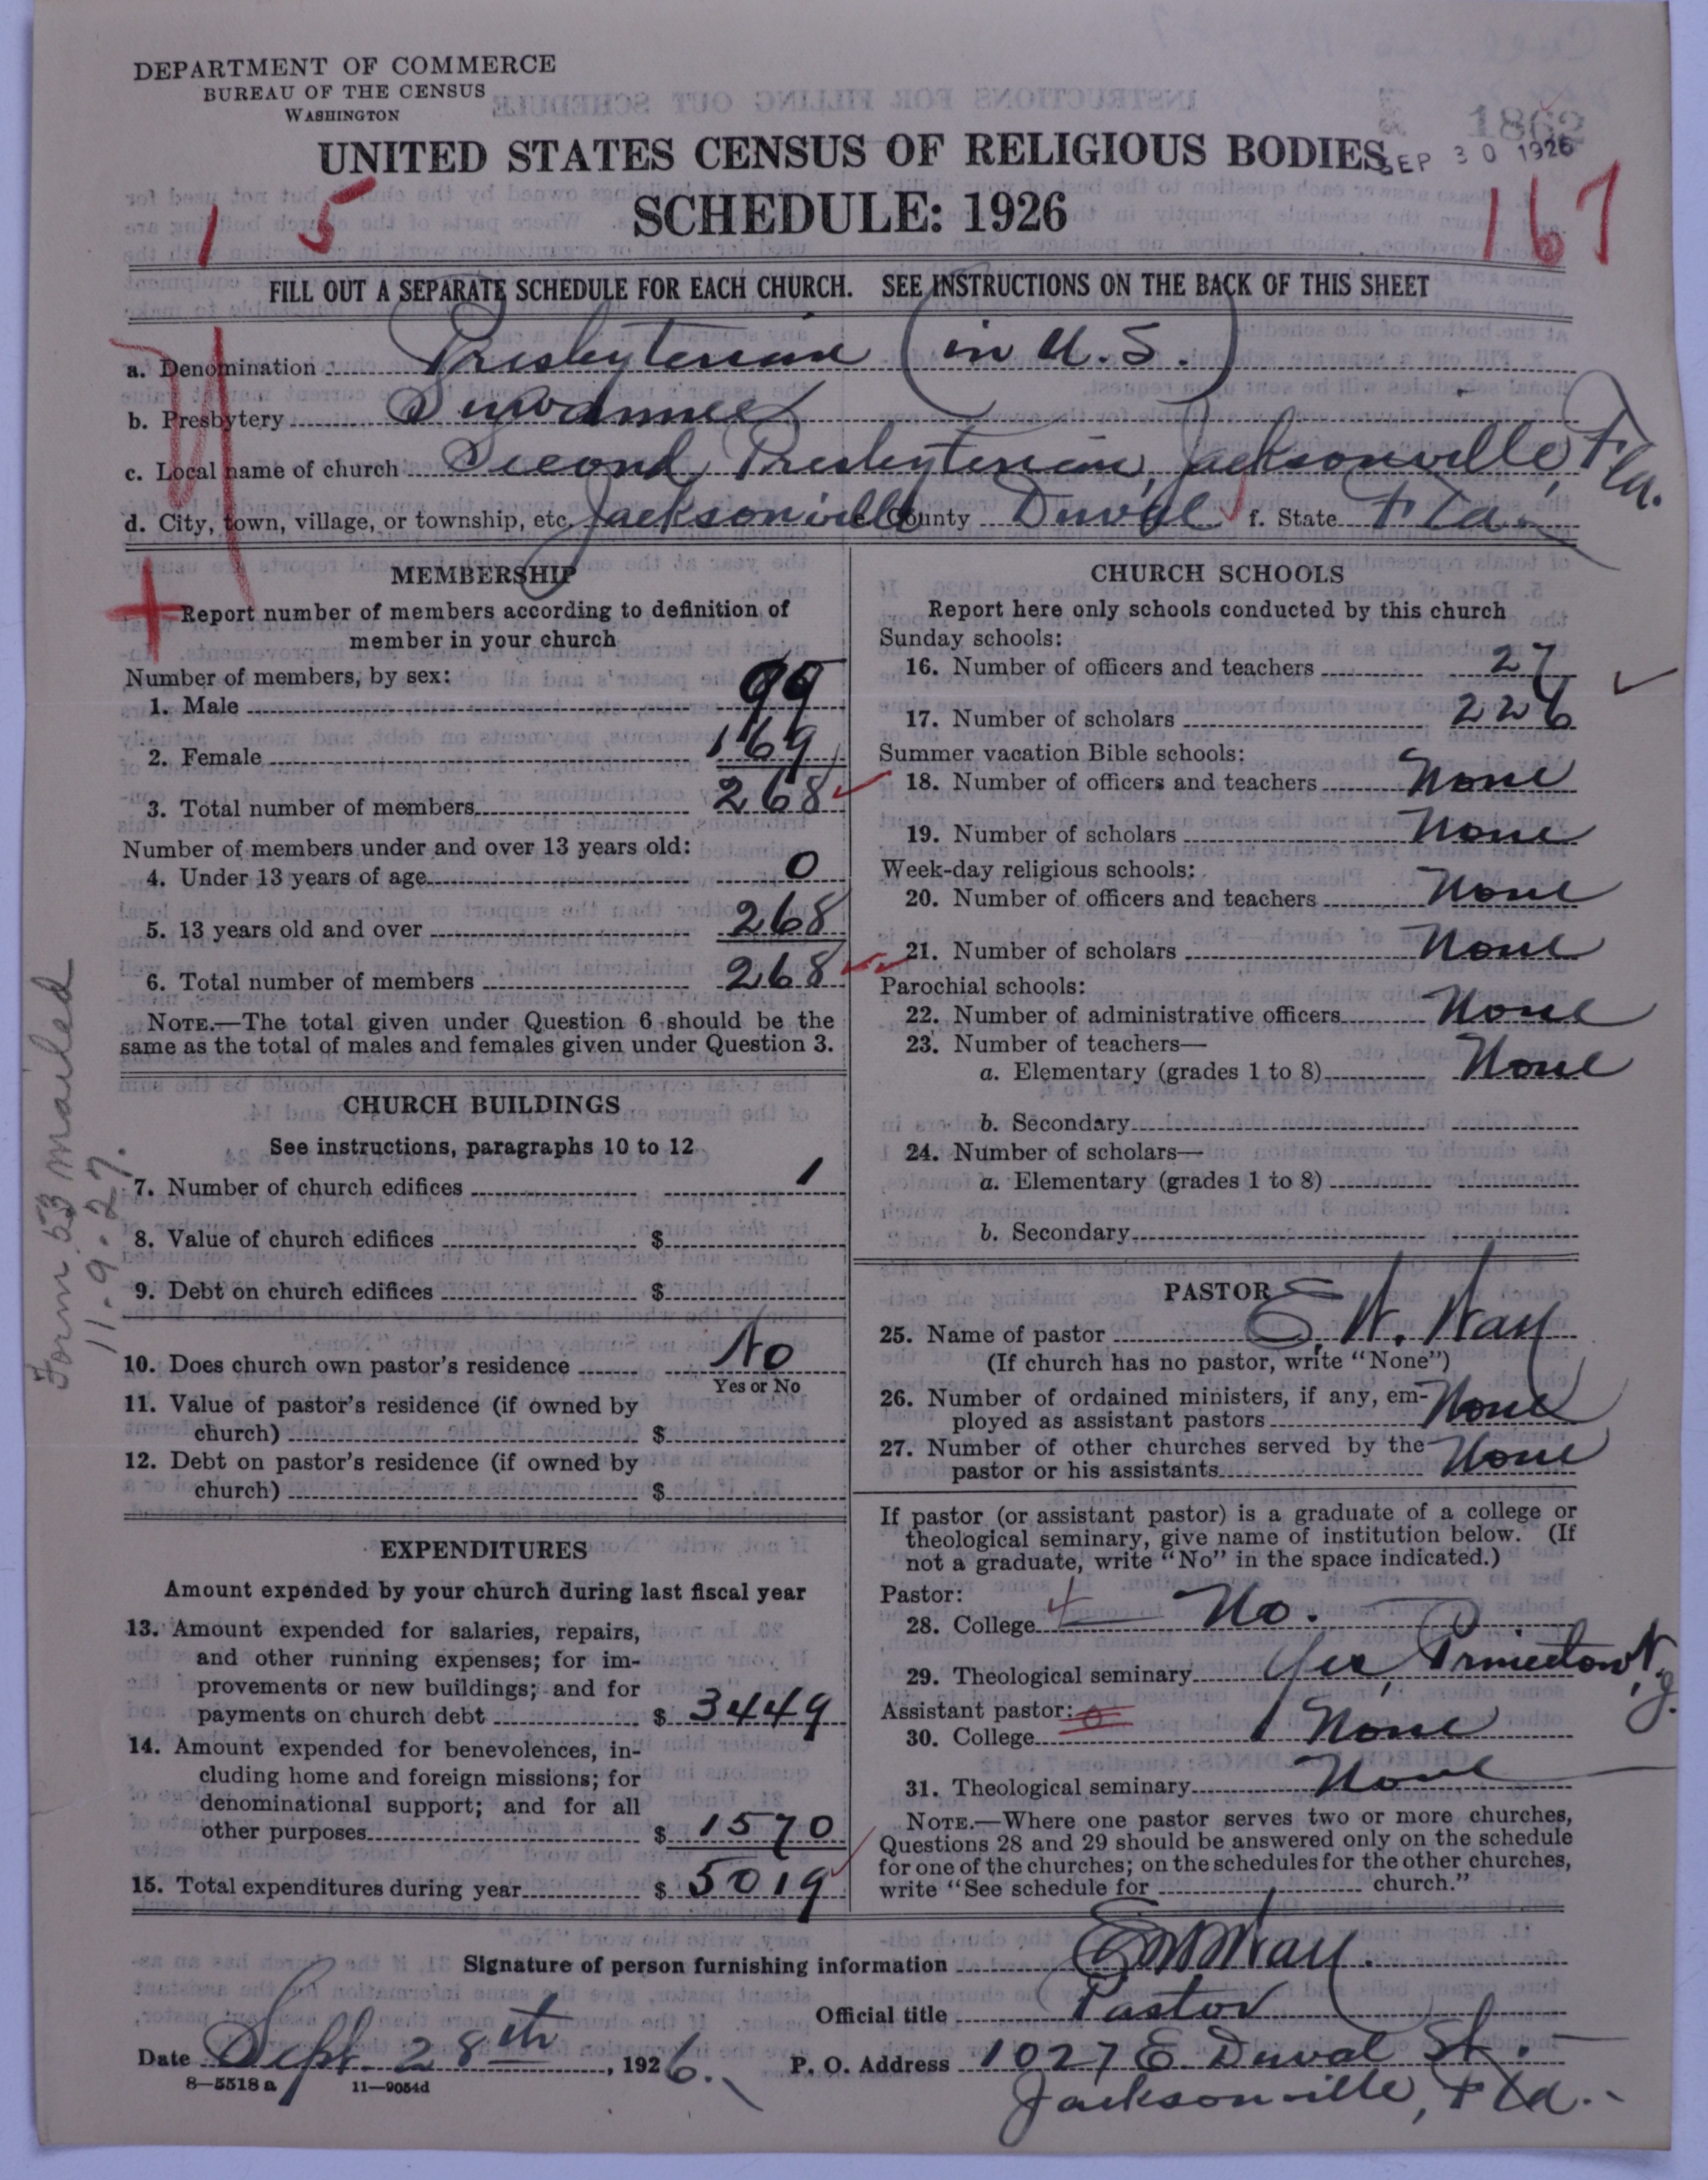 DEPARTMENT OF COMMERCE
BUREAU OF THE CENSUS
WASHINGTON
1862
SEP 30 1926
UNITED STATES CENSUS OF RELIGIOUS BODIES
SCHEDULE: 1926
1 5
167
FILL OUT A SEPARATE SCHEDULE FOR EACH CHURCH. SEE INSTRUCTIONS ON THE BACK OF THIS SHEET
a. Denomination Presbyterian (in U.S.)
b. Presbytery Suwannee
c. Local name of church Second Presbyterian, Jacksonville, Fla.
d. City, town, village, or township, etc. Jacksonville e. County Duval f. State Fla.
MEMBERSHIP
Report number of members according to definition of
member in your church
Number of members, by sex:
1. Male 99
2. Female 169
3. Total number of members 268
Number of members under and over 13 years old:
4. Under 13 years of age 0
5. 13 years old and over 268
6. Total number of members 268
NOTE.—The total given under Question 6 should be the
same as the total of males and females given under Question 3.
CHURCH BUILDINGS
See instructions, paragraphs 10 to 12
7. Number of church edifices 1
8. Value of church edifices $
9. Debt on church edifices $
10. Does church own pastor's residence No
Yes or No
11. Value of pastor's residence (if owned by
church) $
12. Debt on pastor's residence (if owned by
church) $
EXPENDITURES
Amount expended by your church during last fiscal year
13. Amount expended for salaries, repairs,
and other running expenses; for im-
provements or new buildings; and for
payments on church debt $ 3449
14. Amount expended for benevolences, in-
cluding home and foreign missions; for
denominational support; and for all
other purposes $ 1570
15. Total expenditures during year $ 5019
CHURCH SCHOOLS
Report here only schools conducted by this church
Sunday schools:
16. Number of officers and teachers 27
17. Number of scholars 226
Summer vacation Bible schools:
18. Number of officers and teachers None
19. Number of scholars None
Week-day religious schools:
20. Number of officers and teachers None
21. Number of scholars None
Parochial schools:
22. Number of administrative officers None
23. Number of teachers—
a. Elementary (grades 1 to 8) None
b. Secondary
24. Number of scholars—
a. Elementary (grades 1 to 8)
b. Secondary
PASTOR
25. Name of pastor E. W. Way
(If church has no pastor, write "None")
26. Number of ordained ministers, if any, em-
ployed as assistant pastors None
27. Number of other churches served by the
pastor or his assistants None
If pastor (or assistant pastor) is a graduate of a college or
theological seminary, give name of institution below. (If
not a graduate, write "No" in the space indicated.)
Pastor:
28. College No.
29. Theological seminary Yes, Princeton, N.J.
Assistant pastor: 0
30. College None
31. Theological seminary None
NOTE.—Where one pastor serves two or more churches,
Questions 28 and 29 should be answered only on the schedule
for one of the churches; on the schedules for the other churches,
write "See schedule for church."
Signature of person furnishing information E W Way.
Official title Pastor
Date Sept. 28th, 1926. P. O. Address 1027 E. Duval St.
Jacksonville, Fla.
8—5518 a 11—9054d
Form 53 mailed
11.9.27.